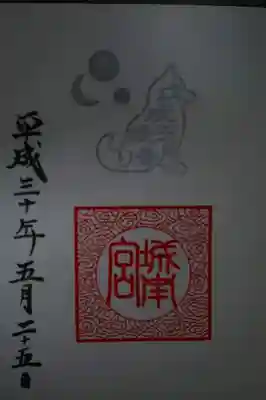 城南宮
平成三十年五月二十五日